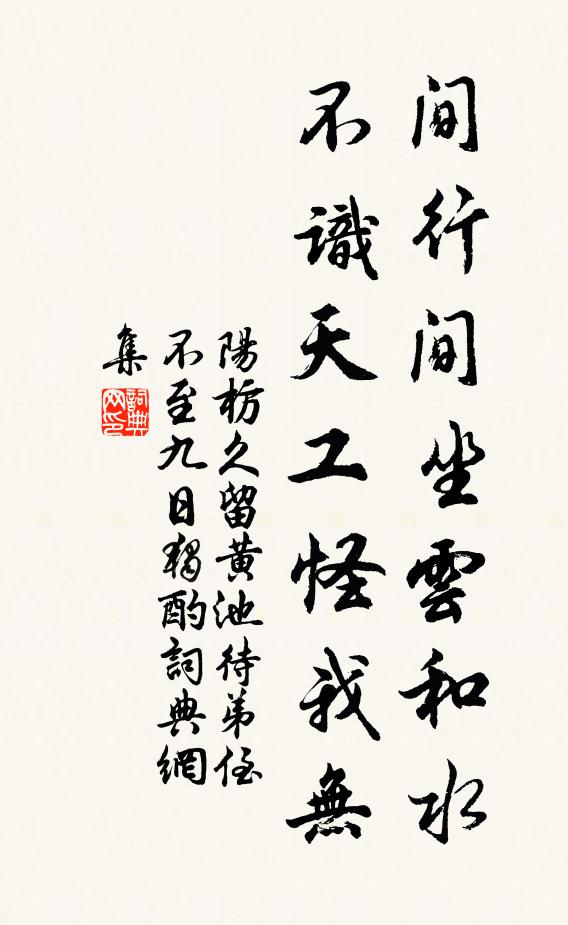 間行間坐雲和水
不識天工怪我無
陽枋久留黄池待弟侄
不至九日獨酌詞典網
集
詞典
网印